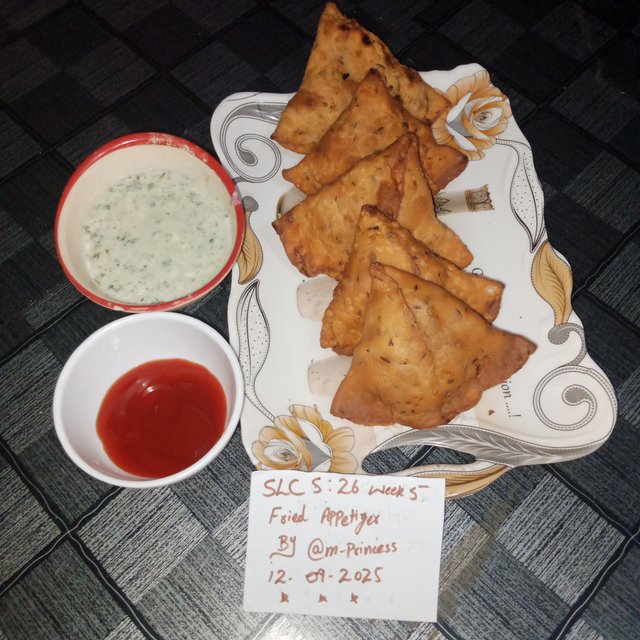 SLC S:26 week 5
Fried Appetizer
By @m-princess
12-09-2025